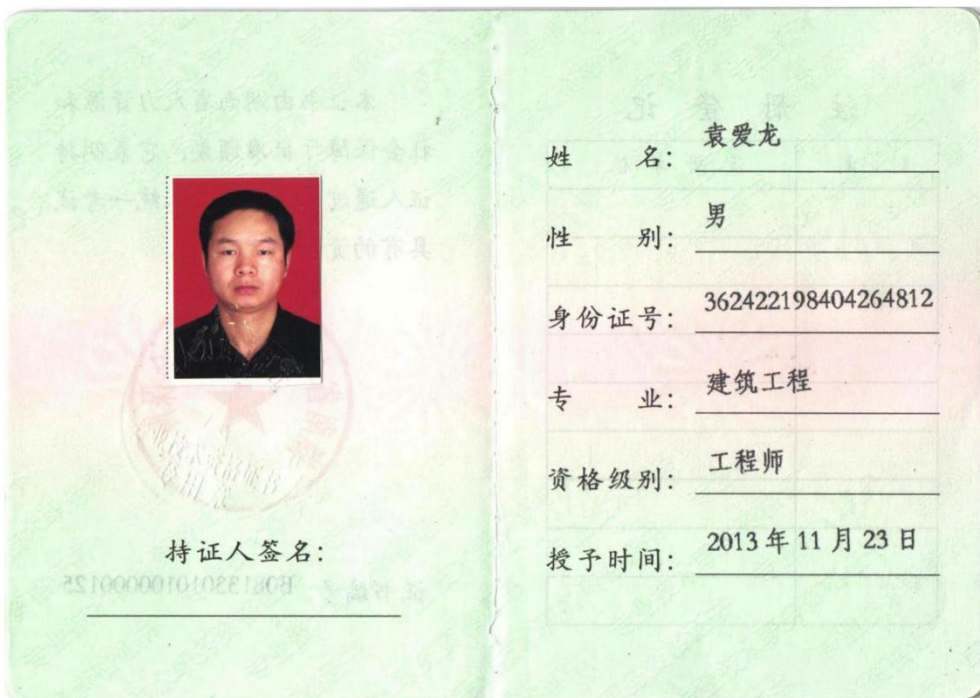 持证人签名:
姓 名: 袁爱龙
性 别: 男
身份证号: 362422198404264812
专 业: 建筑工程
资格级别: 工程师
授予时间: 2013 年 11 月 23 日